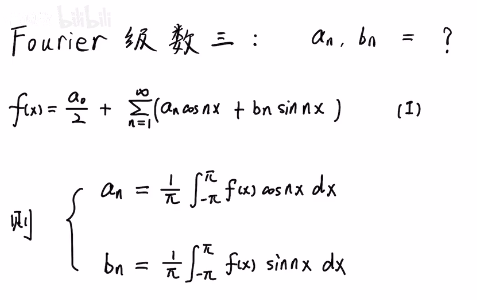 bilibili
Fourier 级数三: aₙ, bₙ = ?
f(x) = a₀/2 + ∑_{n=1}^{∞} (aₙ cos nx + bₙ sin nx) (I)
则 { aₙ = 1/π ∫_{-π}^{π} f(x) cos nx dx
bₙ = 1/π ∫_{-π}^{π} f(x) sin nx dx